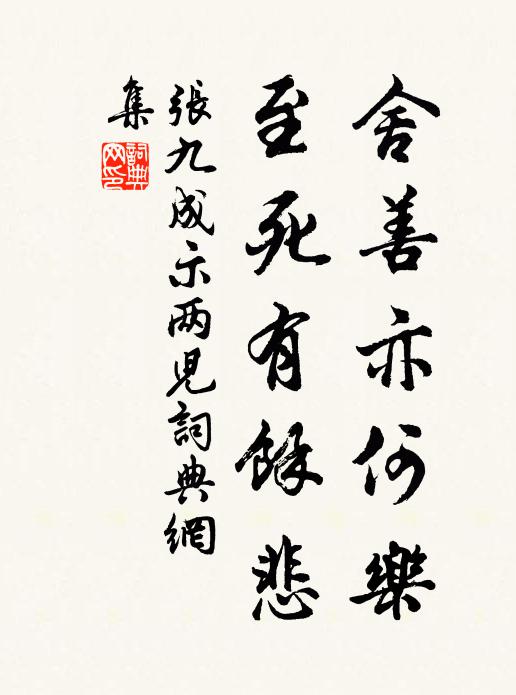 舍善亦何樂
至死有餘悲
張九成示两兒詞典網
集
詞典网印